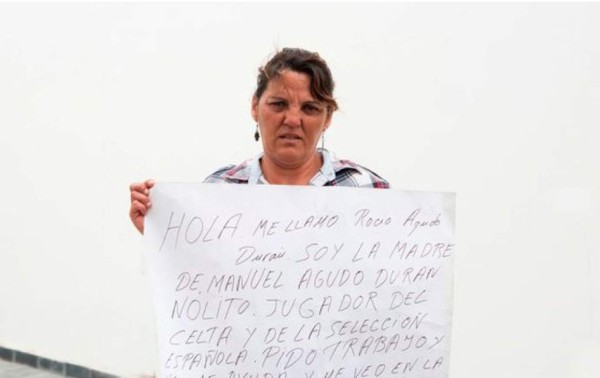 HOLA ME LLAMO Rocio Agudo
Durán SOY LA MADRE
DE. MANUEL AGUDO DURAN
NOLITO. JUGADOR DEL
CELTA Y DE LA SELECCION
ESPAÑOLA. PIDO TRABAJO Y
AYUDA Y ME VEO EN LA